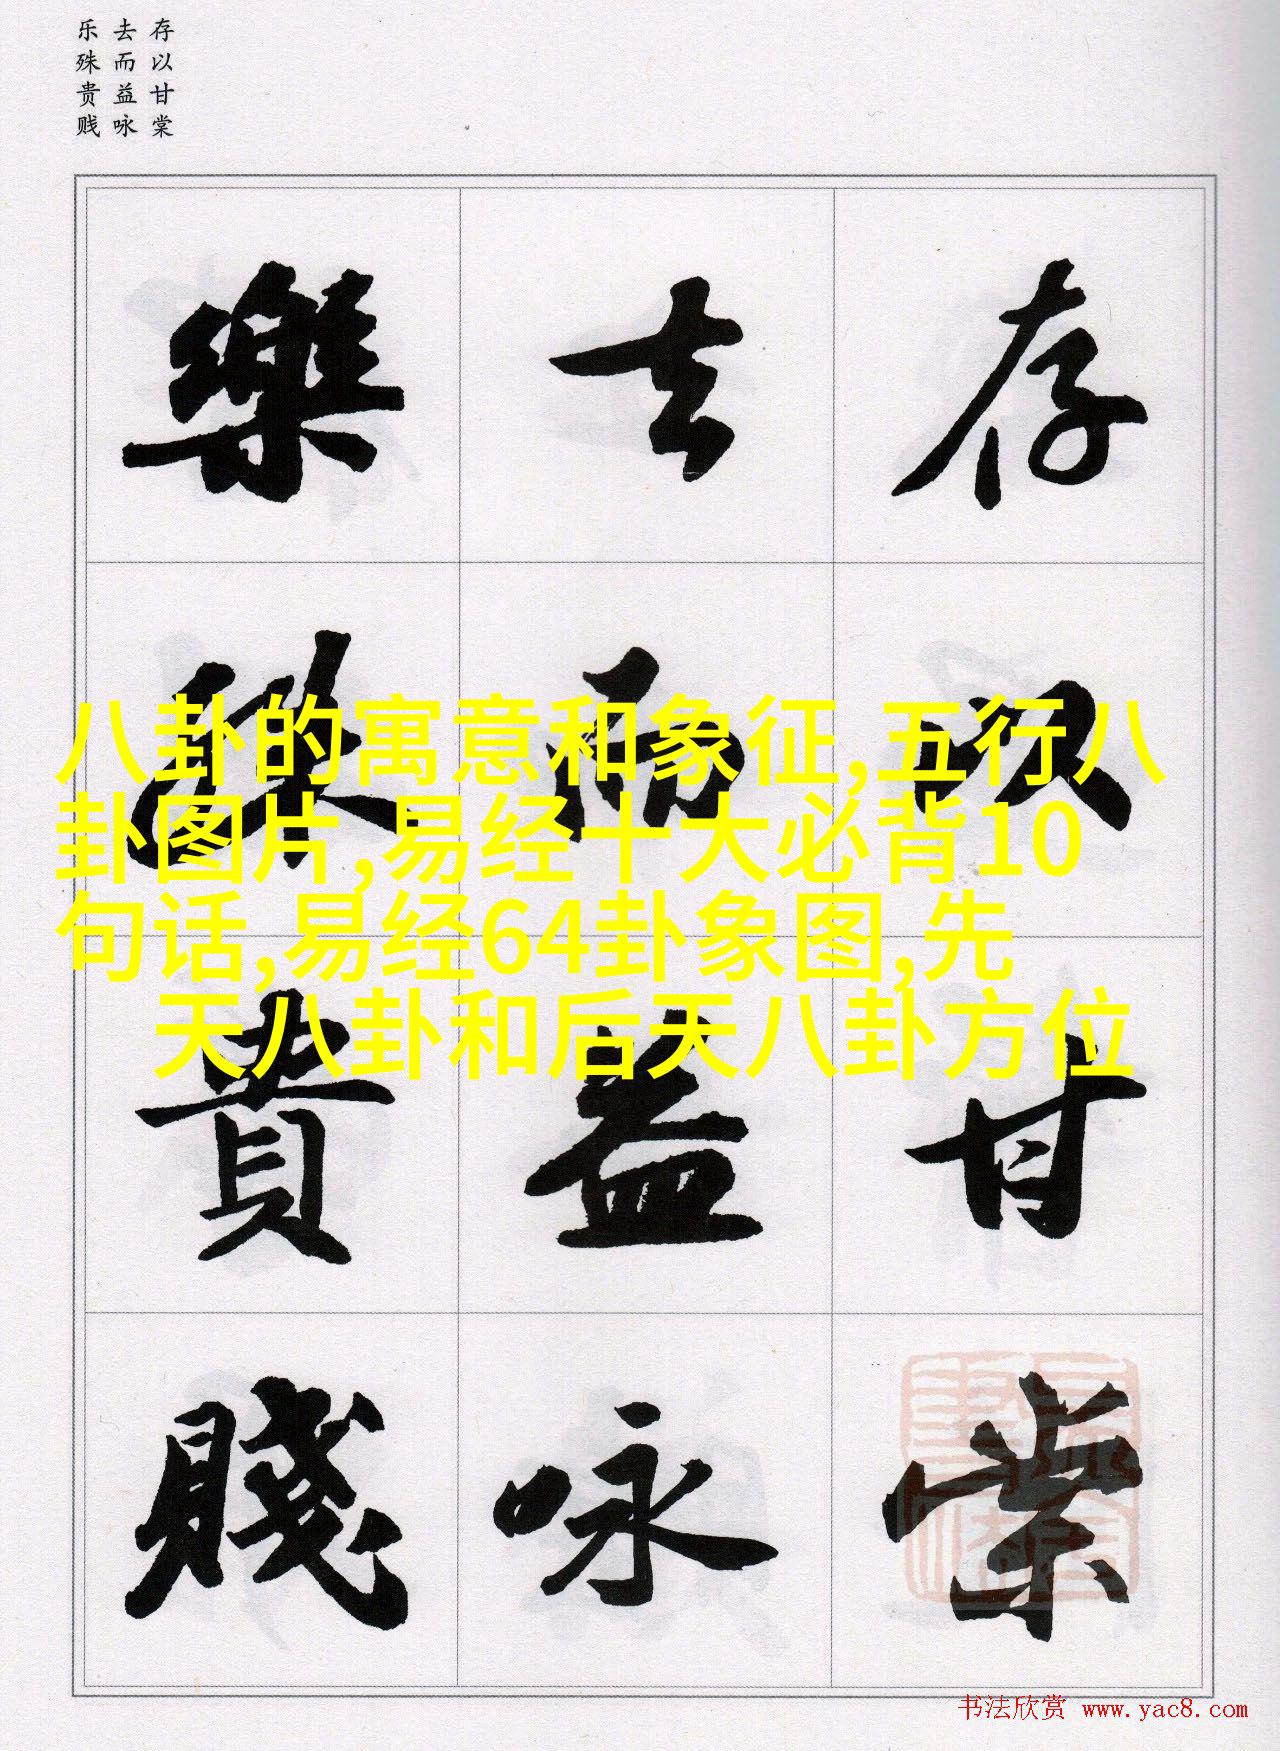 存以甘棠
去而益咏
乐殊贵贱
存以甘棠
去而益咏
樂殊貴賤
八卦的寓意和象征,五行八
卦图片,易经十大必背10
句话,易经64卦象图,先
天八卦和后天八卦方位
书法欣赏 www.yac8.com